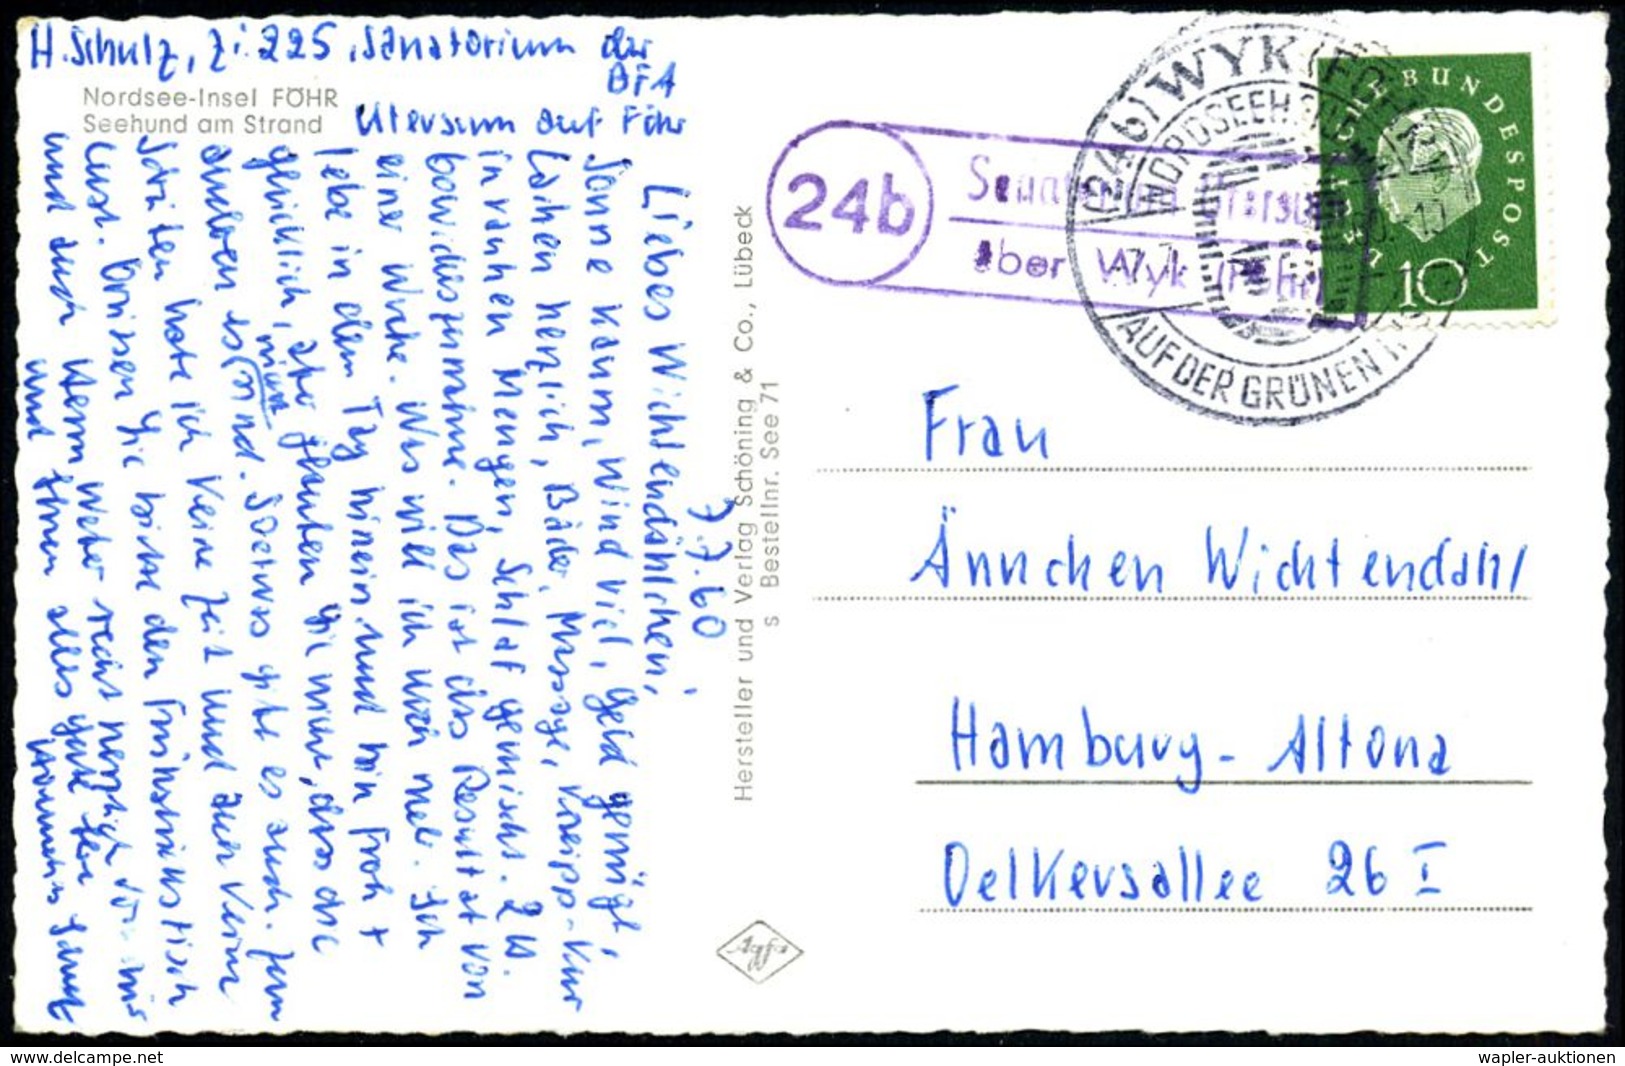 H. Schulz, Zi. 225, Sanatorium der
BFA
Nordsee-Insel FÖHR
Seehund am Strand
Utersum auf Föhr
7.7.60
Liebes Wichtendählchen,
Sonne kaum, Wind viel, Geld genügt,
Lachen herzlich, Bäder, Massage, Kneipp-Kur
in rauhen Mengen, Schlaf gemischt. 2 Pf.
bowidieszunahme. Das ist das Resultat von
einer Woche. Was will ich mehr. Ich
lebe in den Tag hinein und bin froh +
glücklich, aber glauben Sie nicht, dass die
anderen es nicht sind. Soetwas gibt es auch. Zum
Streiten habe ich keine Zeit und auch keine
Lust. Grüssen Sie bitte den Frühstückstisch
und auch Herrn Weber recht herzlich von mir
und Ihnen alles gute
Hersteller und Verlag Schöning & Co., Lübeck
s Bestellnr. See 71
Agfa
24b
über Wyk (Föhr)
(24b) WYK (FÖHR)
NORDSEEH
AUF DER GRÜNEN
DEUTSCHE BUNDESPOST
10
Frau
Ännchen Wichtendahl
Hamburg-Altona
Oelkersallee 26 I
www.delcampe.net
wapler-auktionen